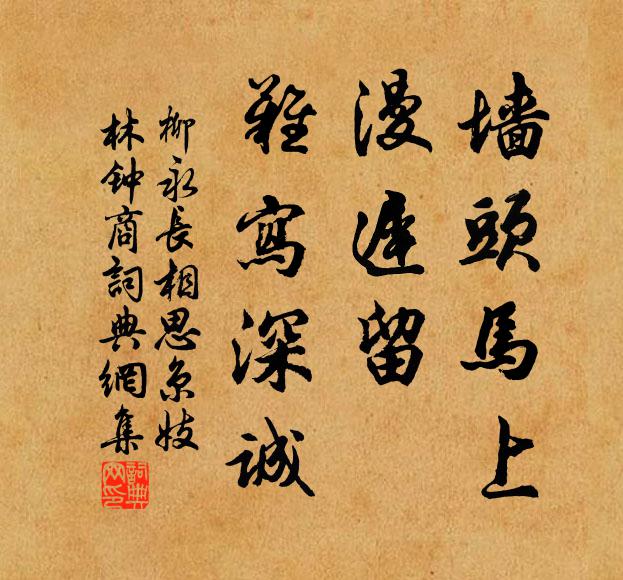 墙頭馬上
漫遲留
難寫深誠
柳永長相思京妓
林钟商詞典網集
詞典網印